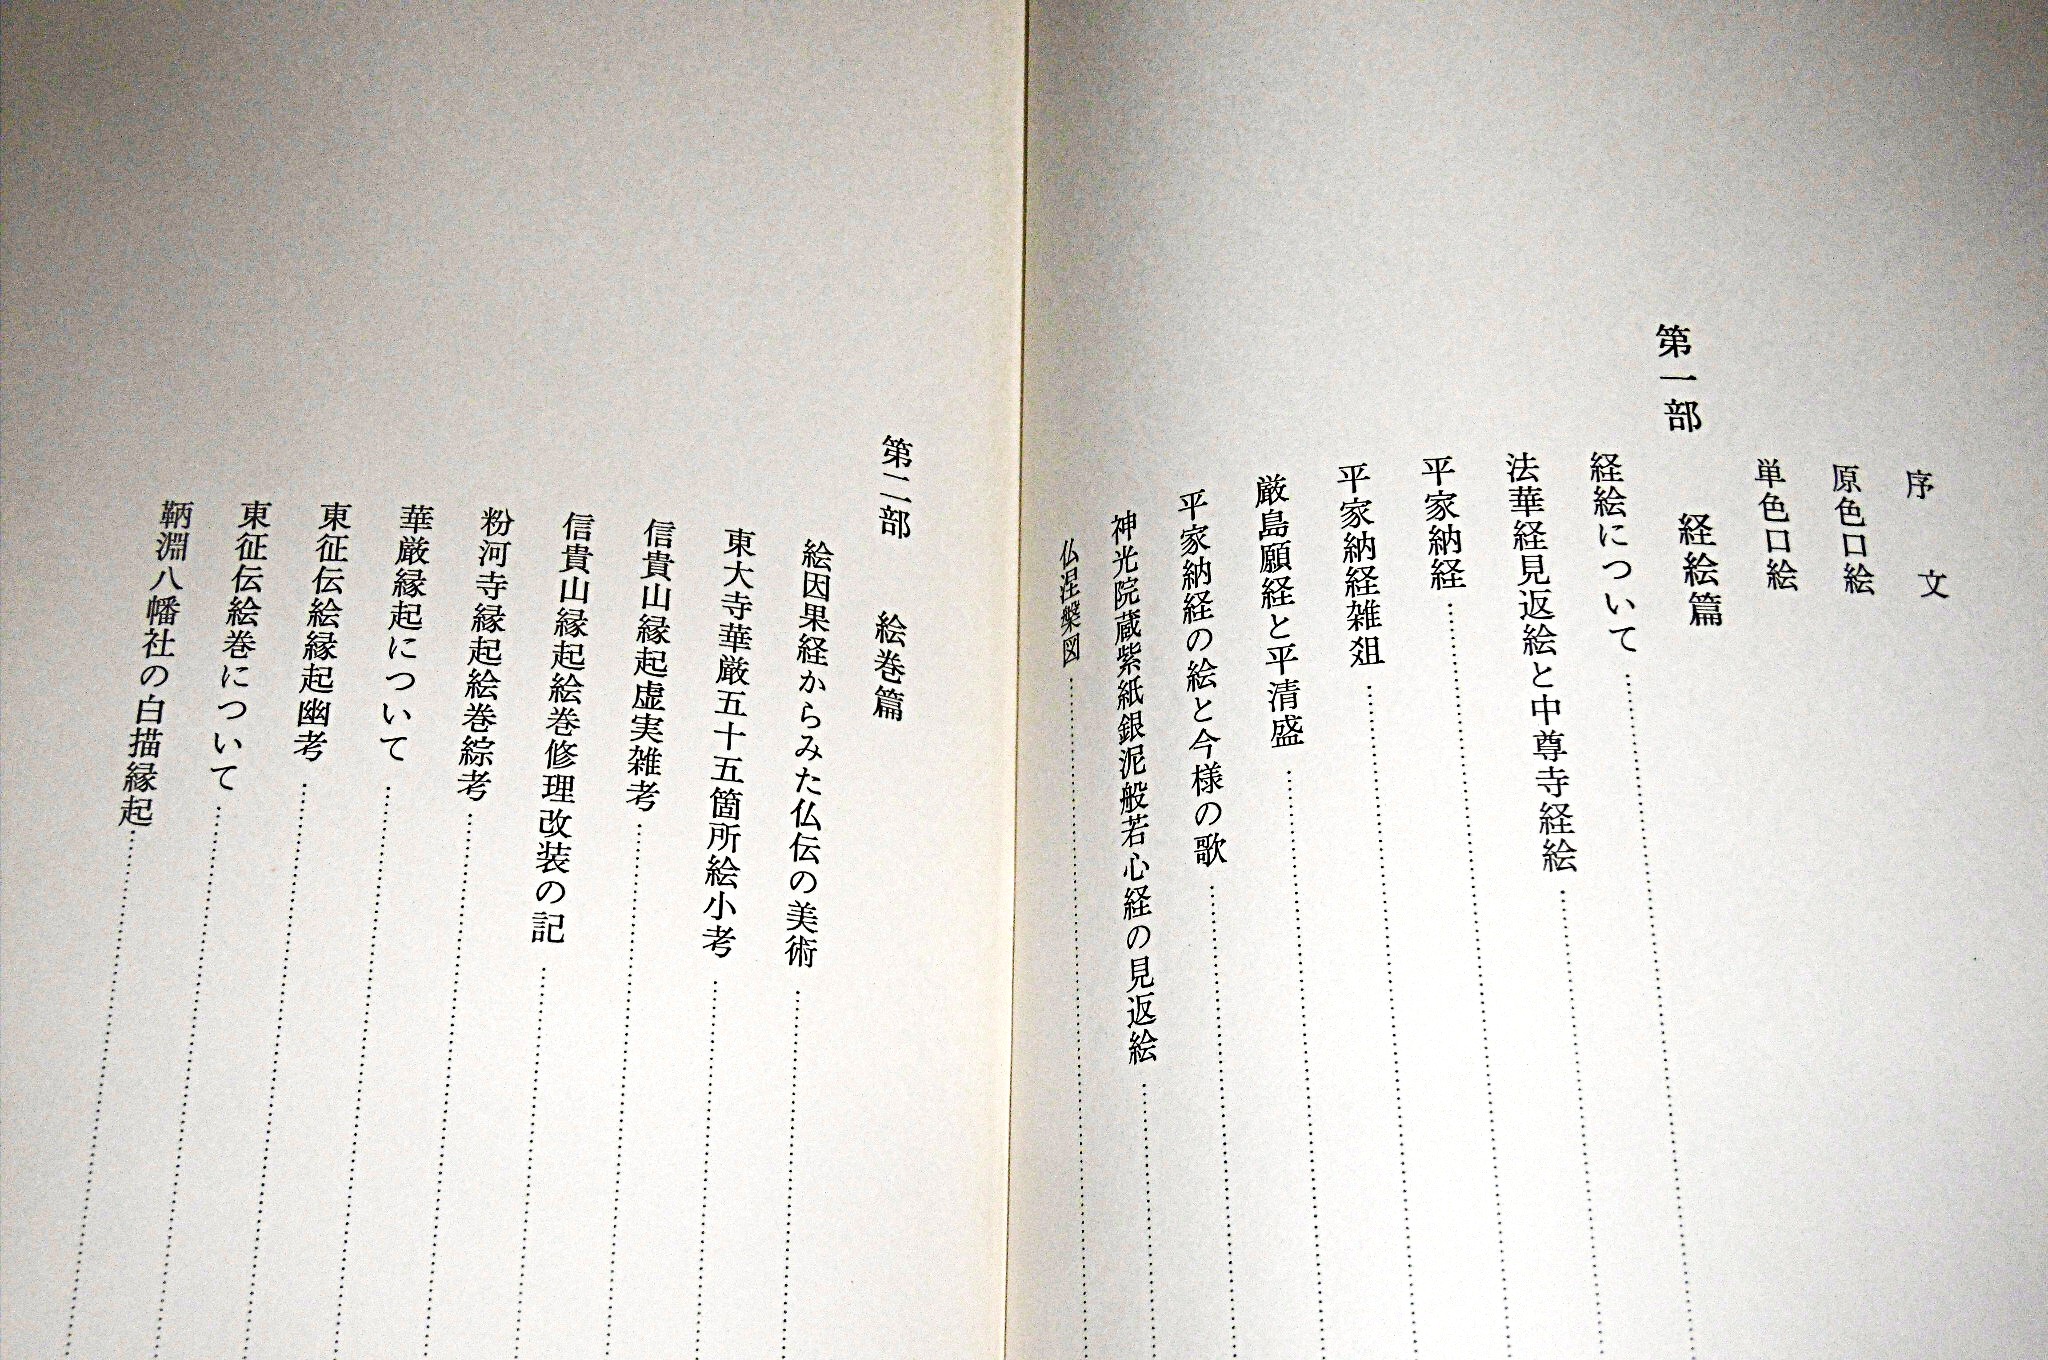 序　文
原色口絵
単色口絵
第一部　経絵篇
経絵について
法華経見返絵と中尊寺経絵
平家納経
平家納経雑爼
厳島願経と平清盛
平家納経の絵と今様の歌
神光院蔵紫紙銀泥般若心経の見返絵
仏涅槃図
第二部　絵巻篇
絵因果経からみた仏伝の美術
東大寺華厳五十五箇所絵小考
信貴山縁起虚実雑考
信貴山縁起絵巻修理改装の記
粉河寺縁起絵巻綜考
華厳縁起について
東征伝絵縁起幽考
東征伝絵巻について
鞆淵八幡社の白描縁起